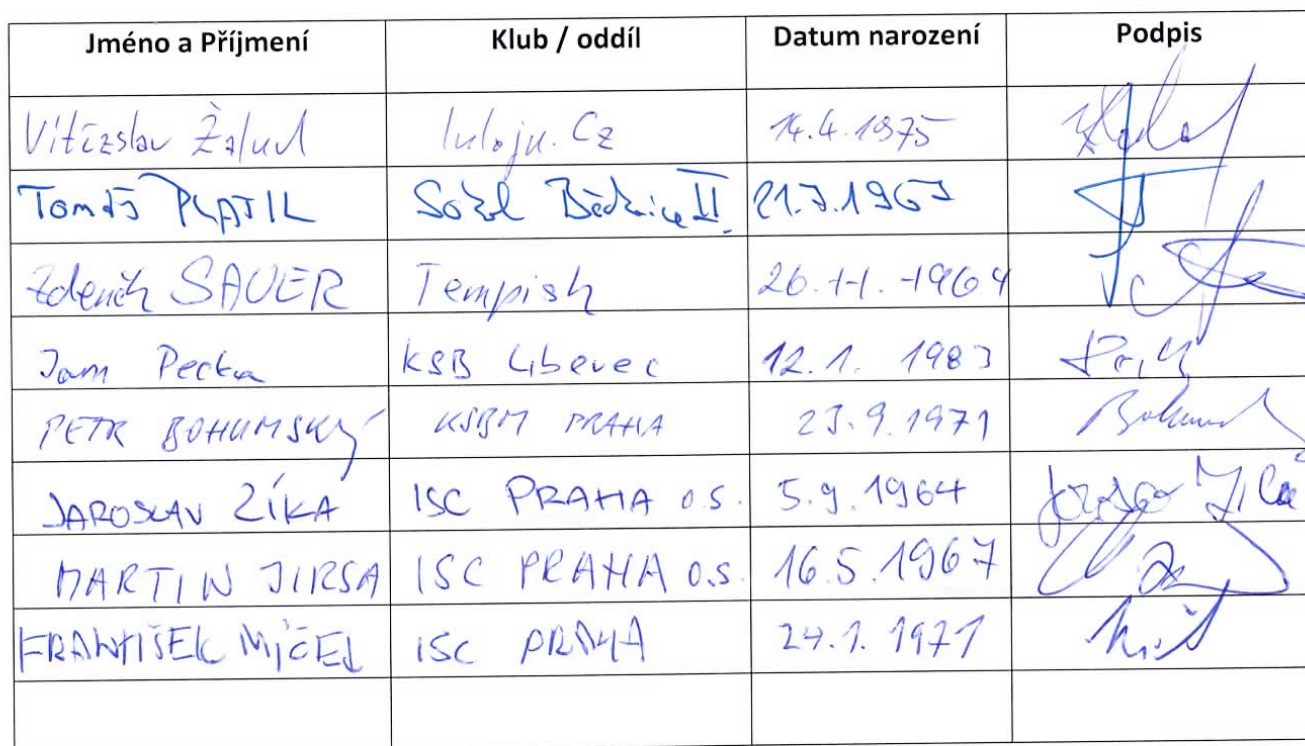 Jméno a Příjmení Klub / oddíl Datum narození Podpis
Vítězslav Žalud inlajn.cz 14.4.1975
Tomáš PLATIL Sokol II. 21.7.1967
Zdeněk SAUER Tempish 26.11.1964
Jan Pecka KSB Liberec 12.1. 1983
PETR BOHUMSKÝ KSBM PRAHA 23.9.1971
JAROSLAV ZÍKA ISC PRAHA o.s. 5.9.1964
MARTIN JIRSA ISC PRAHA o.s. 16.5.1967
FRANTIŠEK MÍČEJ ISC PRAHA 24.1.1971